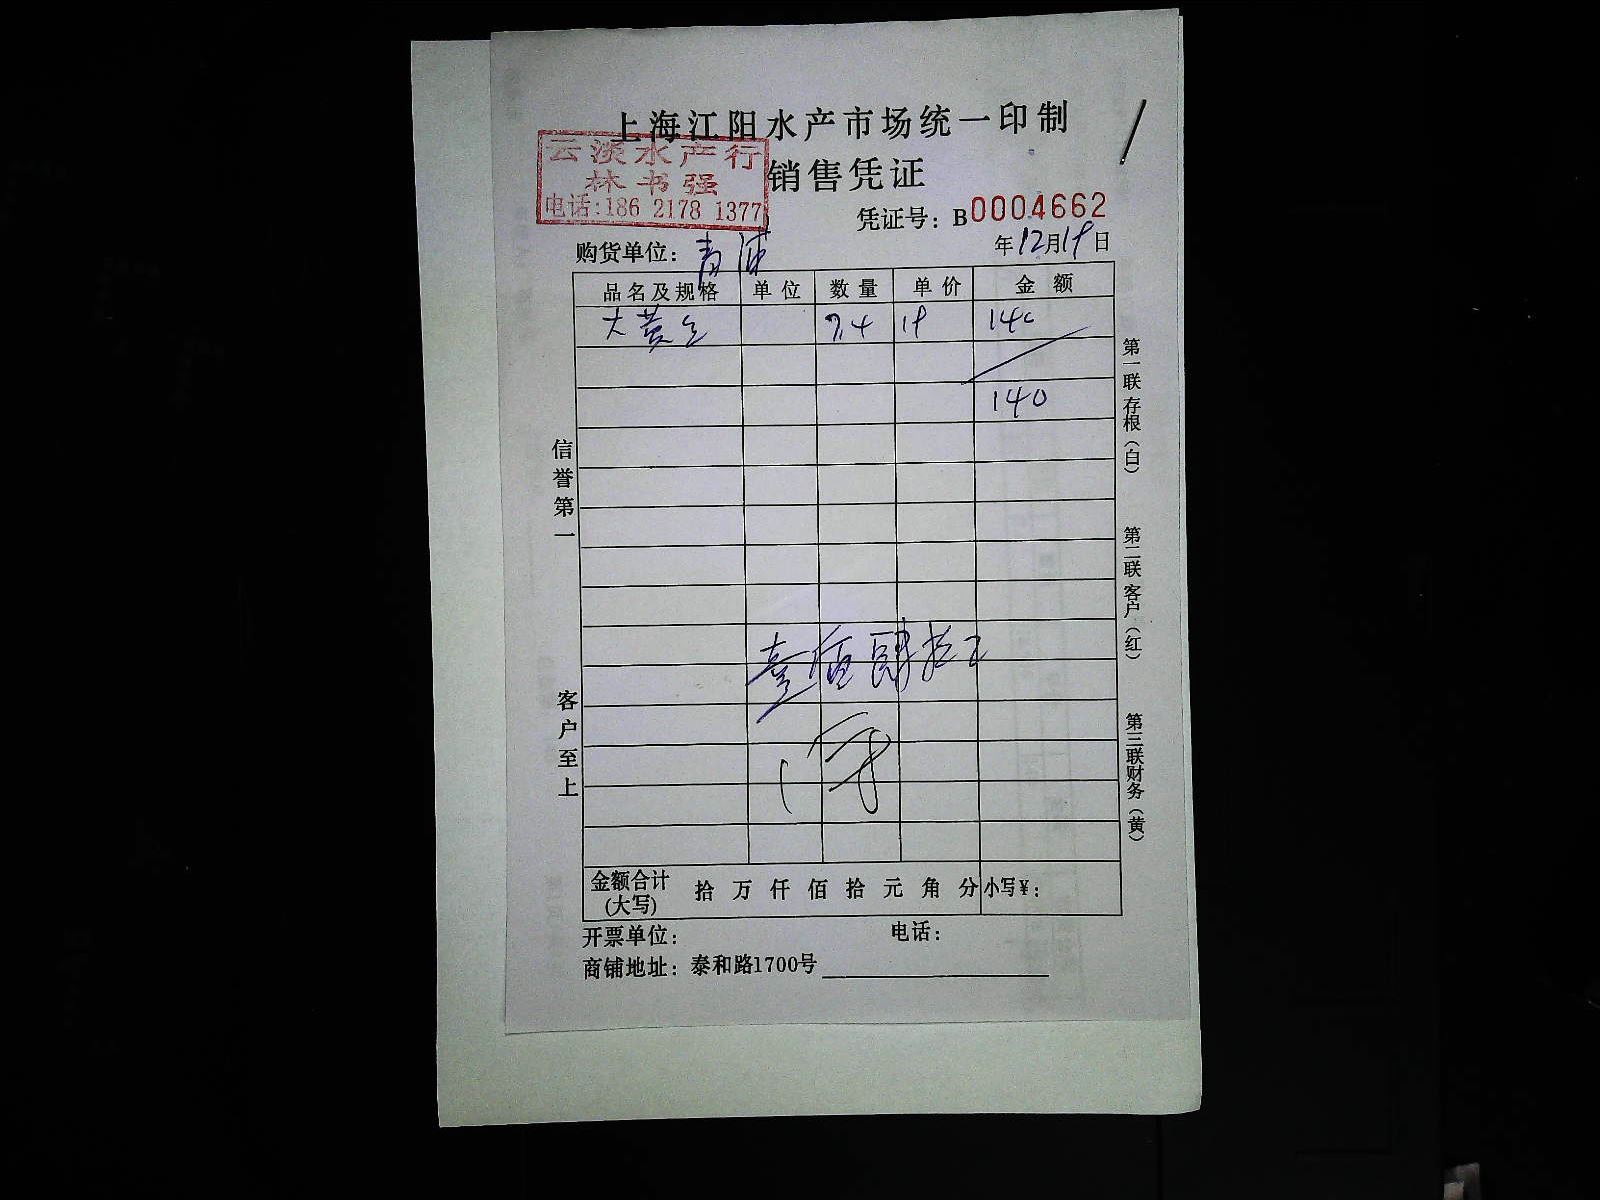 上海江阳水产市场统一印制
云淡水产行
林书强
电话:186 2178 1377
销售凭证
凭证号: B0004662
购货单位: 青浦
年12月19日
品名及规格 单位 数量 单价 金额
大黄鱼 7.4 19 140
140
壹佰肆拾元
金额合计(大写) 拾 万 仟 佰 拾 元 角 分 小写¥:
开票单位: 电话:
商铺地址: 泰和路1700号
信誉第一
客户至上
第一联存根(白)
第二联客户(红)
第三联财务(黄)